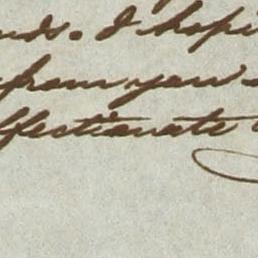 nds. I hope
from you
ffectionate